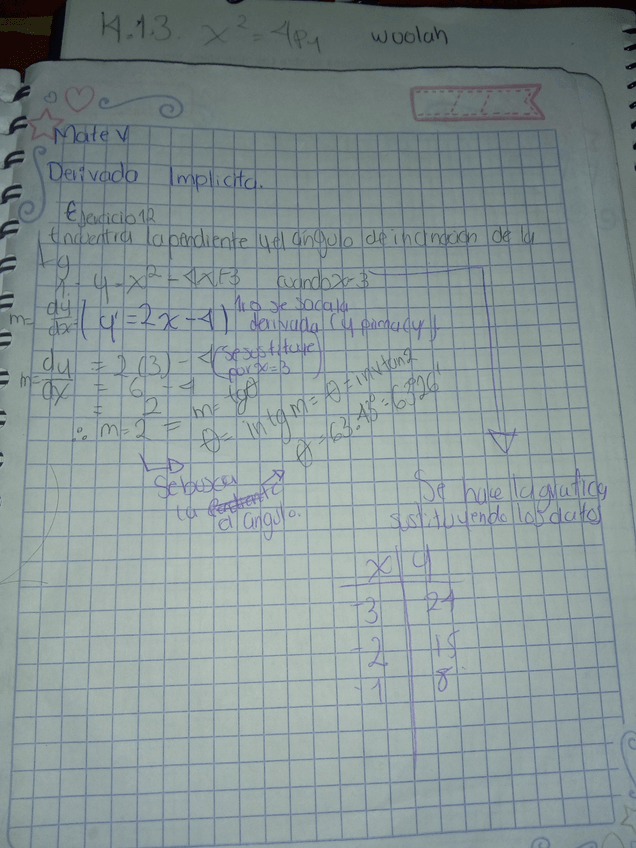 4.1.3. x² = 4py woolah
Mate V
Derivada Implicita.
Ejercicio 12
Encuentra la pendiente y el ángulo de inclinación de la
y = x² - 4x + 3 cuando x = 3
m = dy/dx = ( y' = 2x - 4 ) No se saca la
derivada (y prima dy)
m = dy/dx = 2(3) - 4 (se sustituye
por x = 3
= 6 - 4
= 2 m = tgθ
∴ m = 2 = θ = inv tg m = θ = inv tan 2
θ = 63.43° = 63°26'
Se busca
la
el angulo.
Se hace la grafica
sustituyendo los datos
x | y
-3 | 24
-2 | 15
-1 | 8